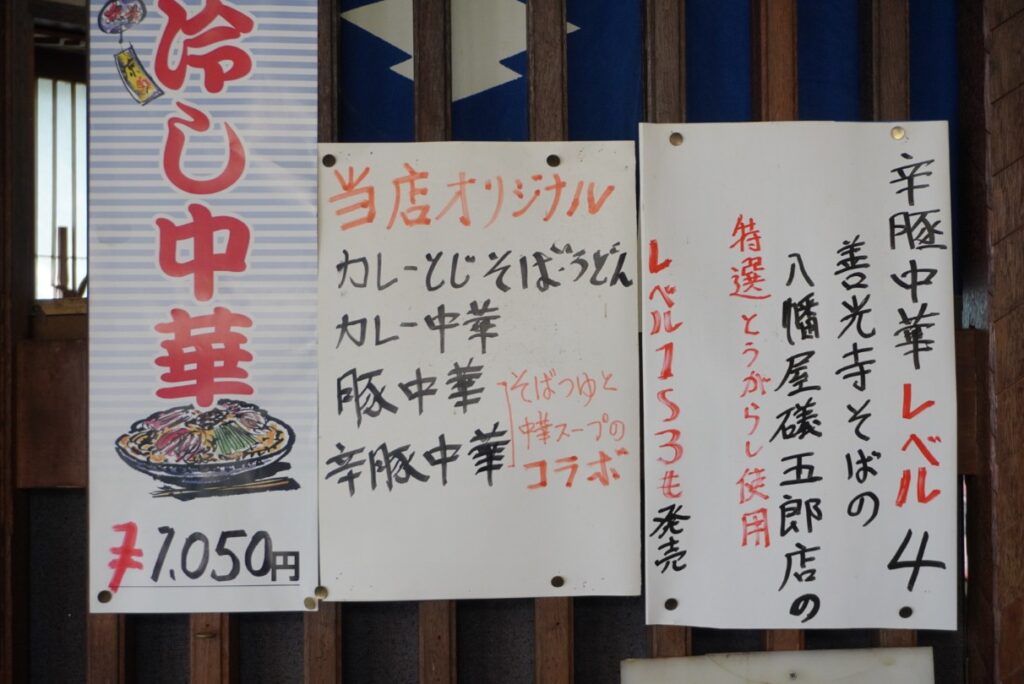 冷し中華
¥1,050円
当店オリジナル
カレーとじそば・うどん
カレー中華
豚中華
辛豚中華
そばつゆと
中華スープの
コラボ
辛豚中華レベル4
善光寺そばの
八幡屋礒五郎店の
特選とうがらし使用
レベル1S3も発売